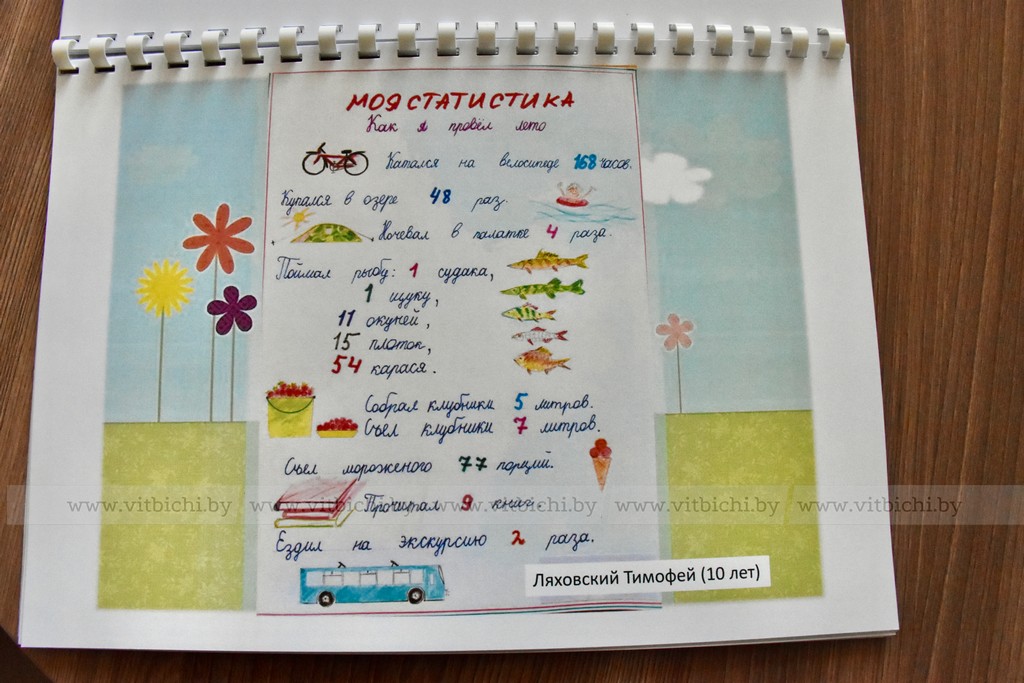 МОЯ СТАТИСТИКА
Как я провёл лето
Катался на велосипеде 168 часов.
Купался в озере 48 раз.
Ночевал в палатке 4 раза.
Поймал рыбу: 1 судака,
1 щуку,
11 окуней,
15 плоток,
54 карася.
Собрал клубники 5 литров.
Съел клубники 7 литров.
Съел мороженого 77 порций.
Прочитал 9 книг.
www.vitbichi.by / www.vitbichi.by / www.vitbichi.by / www.vitbichi.by / www.vitbichi.by
Ездил на экскурсию 2 раза.
Ляховский Тимофей (10 лет)